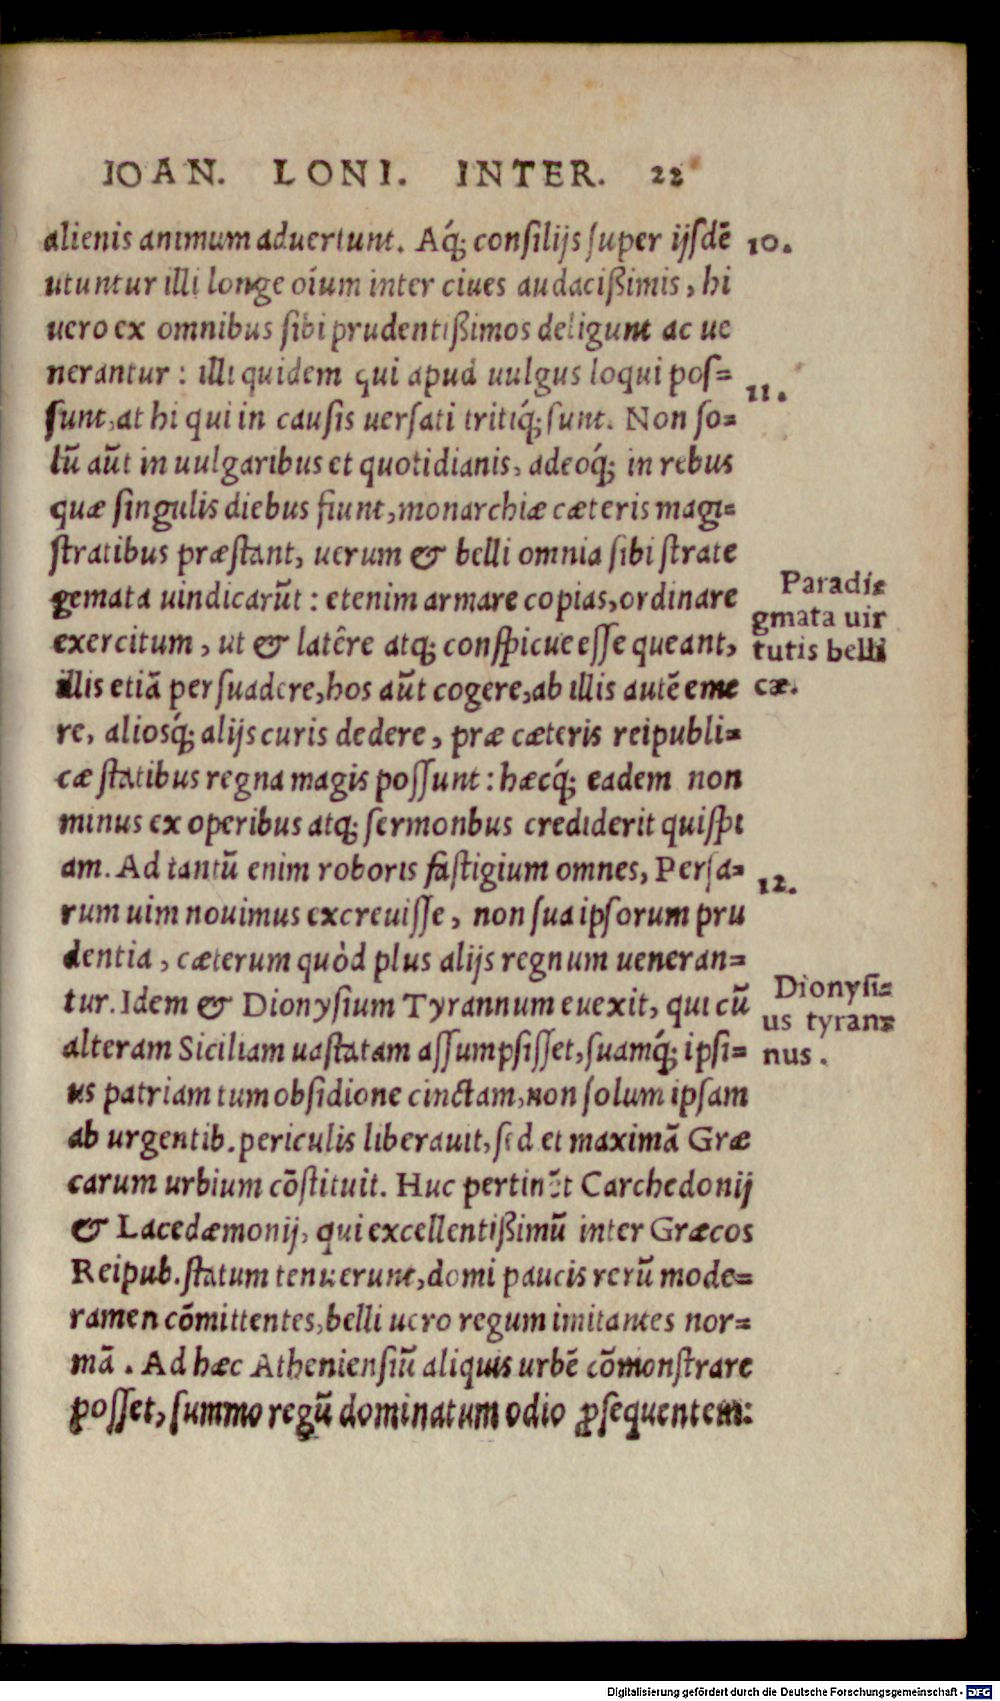 IOAN. LONI. INTER. 22
alienis animum aduertunt. Aq́; consilijs super ijsdē
utuntur illi longe oīum inter ciues audacißimis, hi
uero ex omnibus sibi prudentißimos deligunt ac ue
nerantur: illi quidem qui apud uulgus loqui pos=
sunt, at hi qui in causis uersati tritiq́; sunt. Non so=
lū aūt in uulgaribus et quotidianis, adeoq́; in rebus
quæ singulis diebus fiunt, monarchiæ cæteris magi=
stratibus præstant, uerum & belli omnia sibi strate
gemata uindicarūt: etenim armare copias, ordinare
exercitum, ut & latêre atq; conspicue esse queant,
illis etiā persuadere, hos aūt cogere, ab illis autē eme
re, aliosq́; alijs curis dedere, præ cæteris reipubli=
cæ statibus regna magis possunt: hæcq́; eadem non
minus ex operibus atq; sermonbus crediderit quispi
am. Ad tantū enim roboris fastigium omnes, Persa=
rum uim nouimus excreuisse, non sua ipsorum pru
dentia, cæterum quòd plus alijs regnum ueneran=
tur. Idem & Dionysium Tyrannum euexit, qui cū
alteram Siciliam uastatam assumpsisset, suamq́; ipsi=
us patriam tum obsidione cinctam, non solum ipsam
ab urgentib. periculis liberauit, sed et maximā Græ
carum urbium cōstituit. Huc pertinēt Carchedonij
& Lacedæmonij, qui excellentißimū inter Græcos
Reipub. statum tenuerunt, domi paucis rerū mode=
ramen cōmittentes, belli uero regum imitantes nor=
mā. Ad hæc Atheniensiū aliquis urbē cōmonstrare
posset, summo regū dominatum odio ꝓsequentem:
10.
11.
Paradi=
gmata uir
tutis belli
cæ.
12.
Dionysi=
us tyran=
nus.
Digitalisierung gefördert durch die Deutsche Forschungsgemeinschaft - DFG